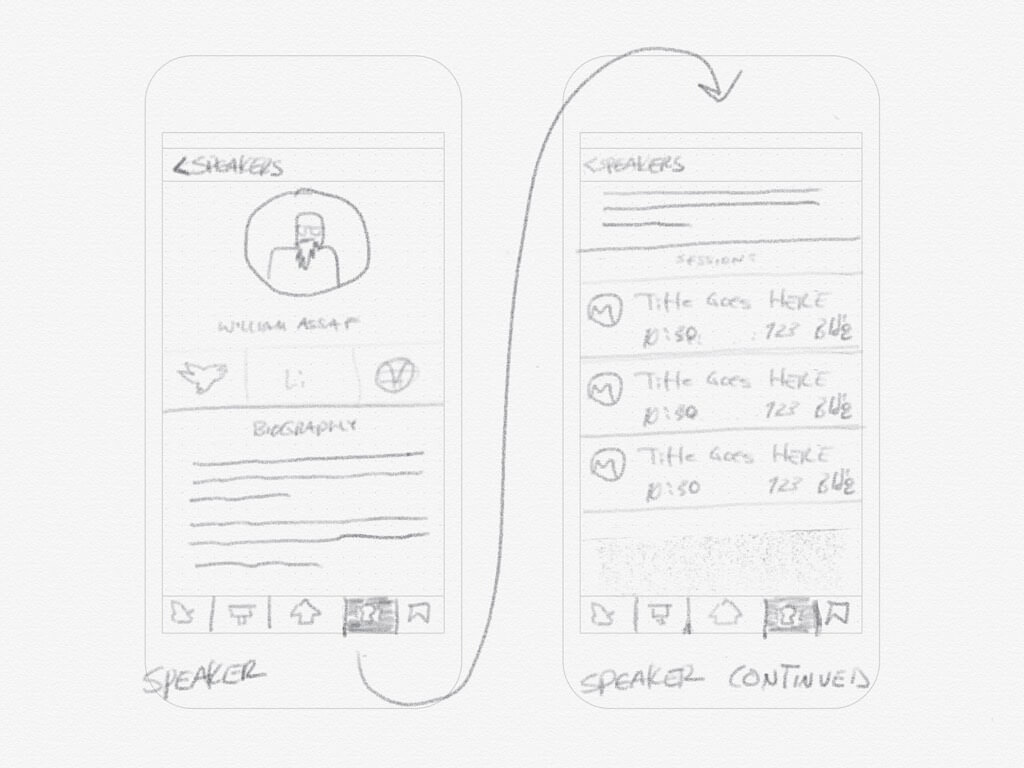 <SPEAKERS
WILLIAM ASSAF
Li
BIOGRAPHY
SPEAKER
<SPEAKERS
SESSIONS
M Title Goes HERE
10:30 123 Bldg
M Title Goes HERE
10:30 123 Bldg
M Title Goes HERE
10:30 123 Bldg
SPEAKER CONTINUED